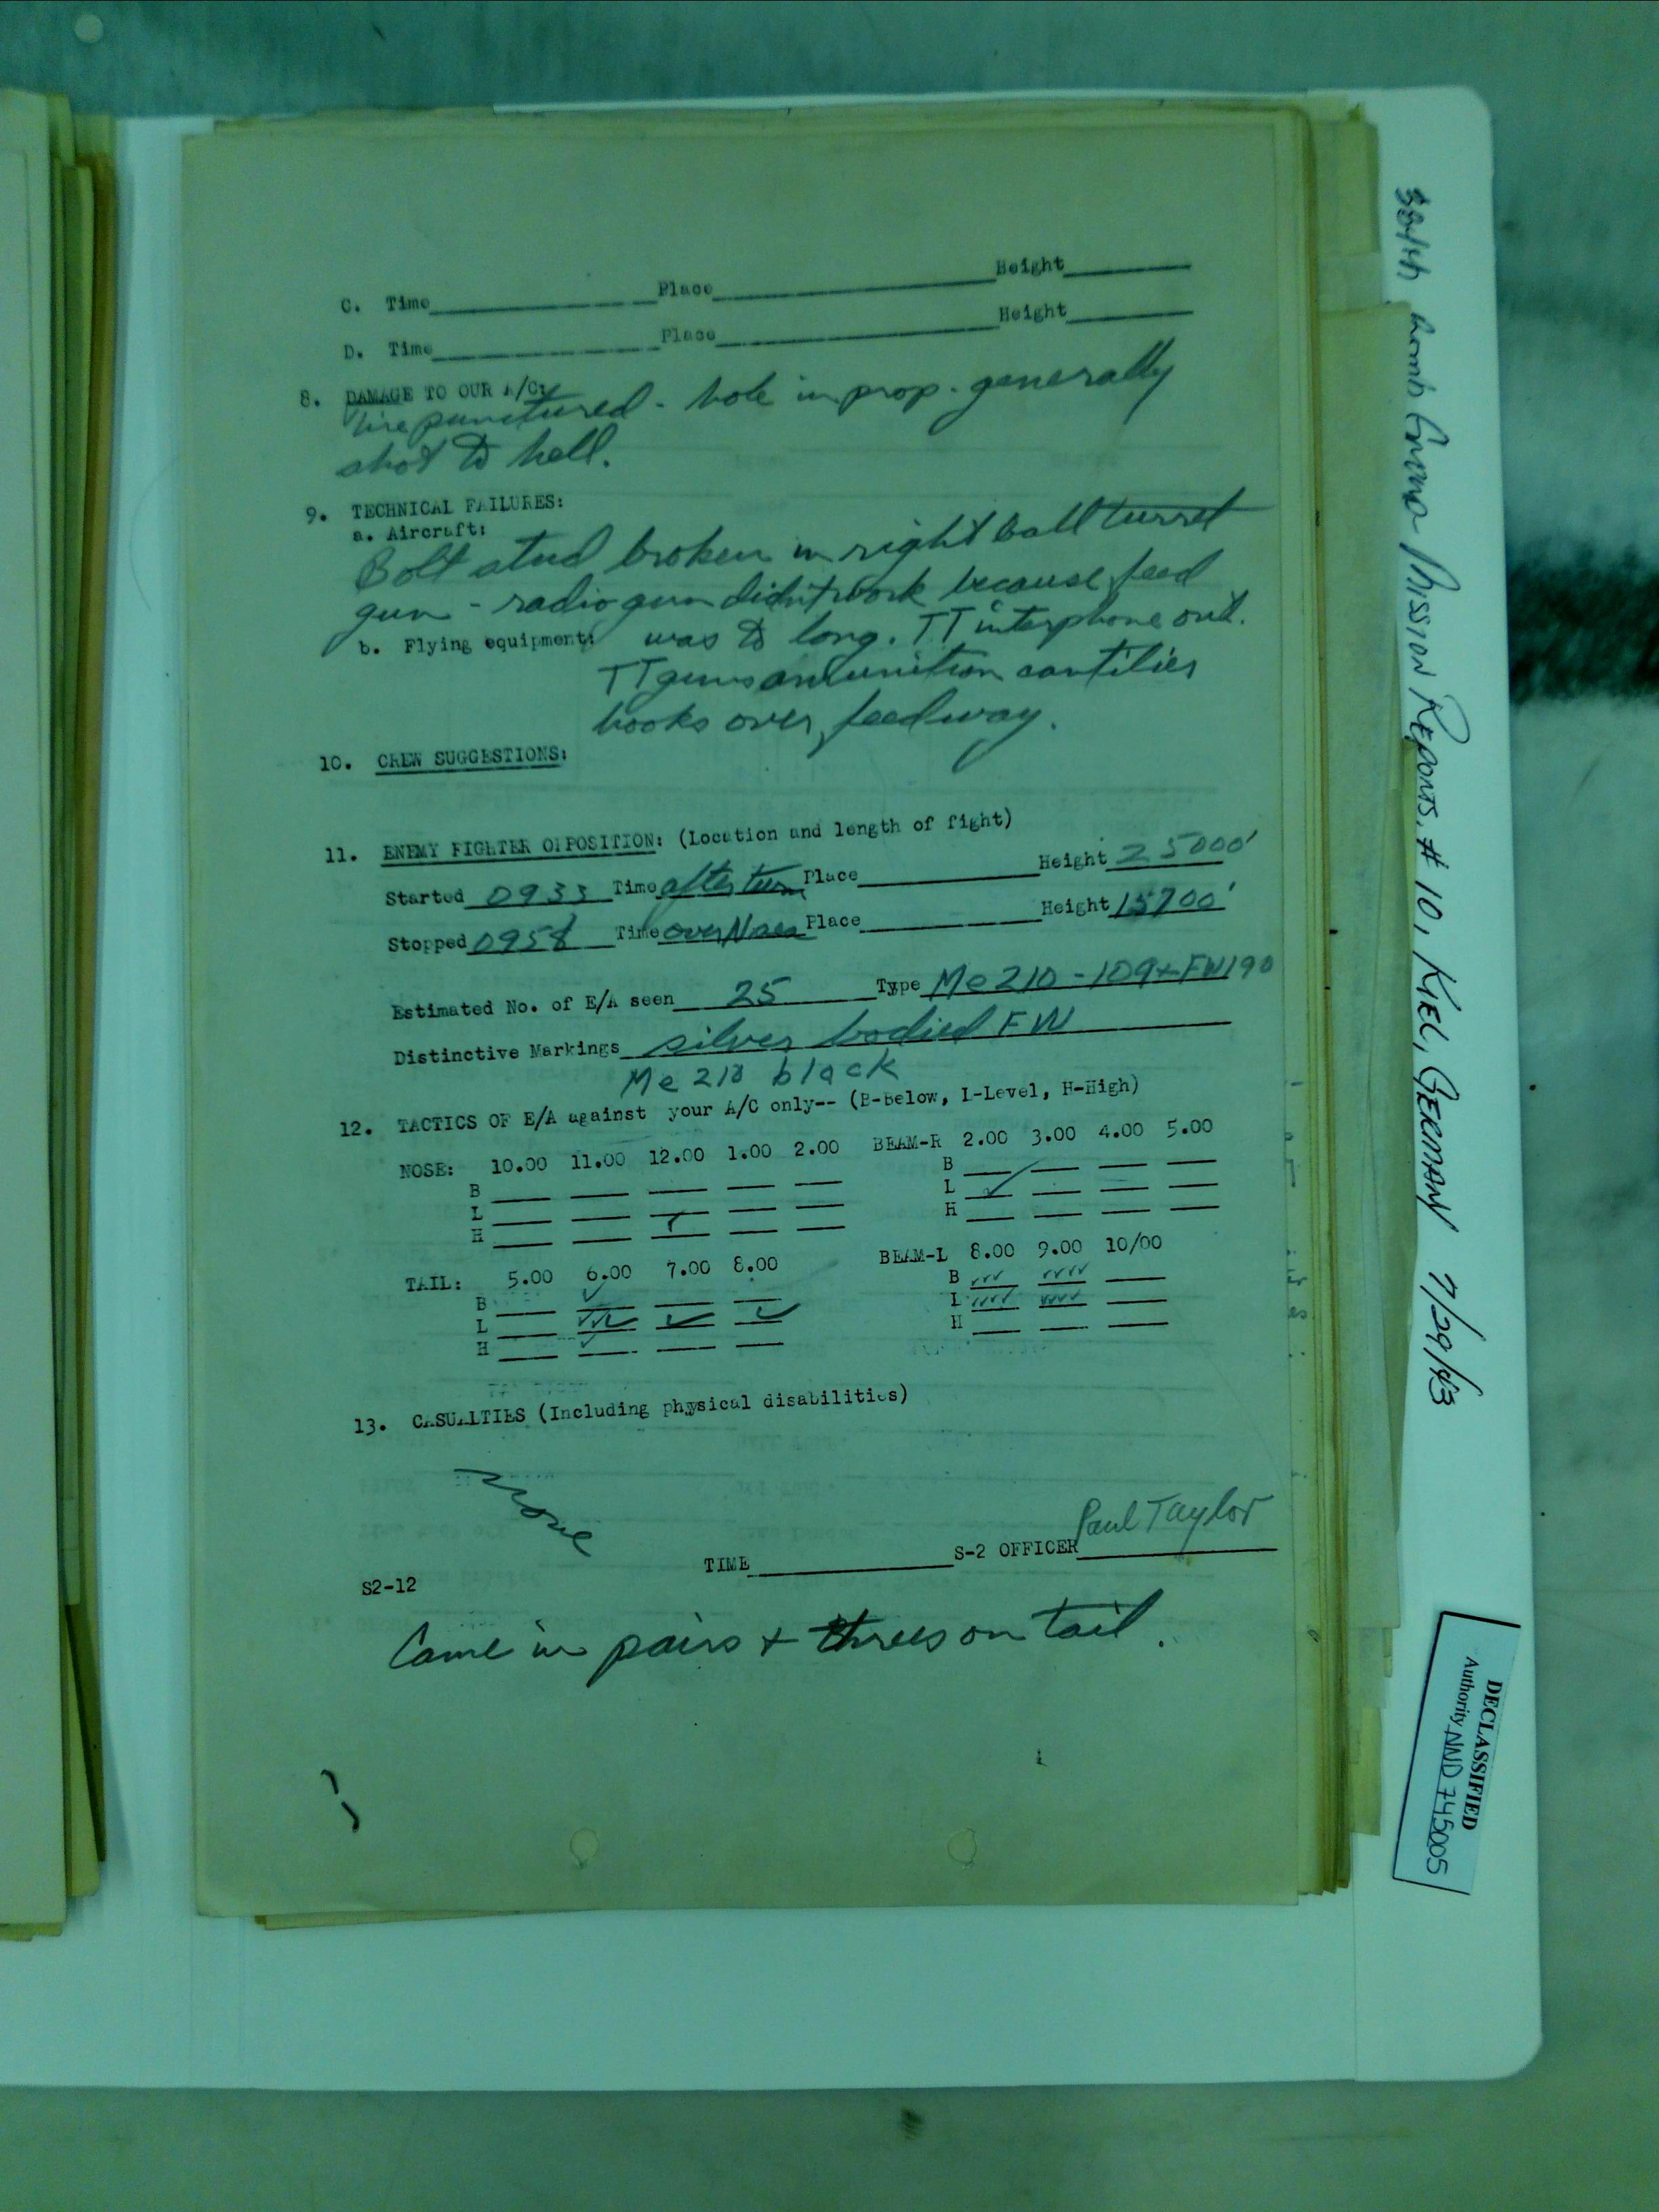 C. Time Place Height
D. Time Place Height
8. DAMAGE TO OUR A/C:
Tire punctured - hole in prop. generally
shot to hell.
9. TECHNICAL FAILURES:
a. Aircraft:
Bolt stud broken in right ball turret
gun - radio gun didn't work because feed
b. Flying equipment: was to long. TT interphone out.
TT guns
hooks over feedway.
10. CREW SUGGESTIONS:
11. ENEMY FIGHTER OPPOSITION: (Location and length of fight)
Started 0933 Time after turn Place Height 25000'
Stopped 0958 Time over Place Height 15700'
Estimated No. of E/A seen 25 Type Me 210 - 109 + FW190
Distinctive Markings silver bodied FW
Me 210 black
12. TACTICS OF E/A against your A/C only-- (B-Below, L-Level, H-High)
NOSE: 10.00 11.00 12.00 1.00 2.00 BEAM-R 2.00 3.00 4.00 5.00
B B
L L
H H
TAIL: 5.00 6.00 7.00 8.00 BEAM-L 8.00 9.00 10/00
B B
L L
H H
13. CASUALTIES (Including physical disabilities)
None
TIME S-2 OFFICER Paul Taylor
S2-12
Came in pairs + threes on tail.
384th Bomb Group Mission Reports, # 10, Kiel, German 7/29/43
DECLASSIFIED
Authority NND 745005